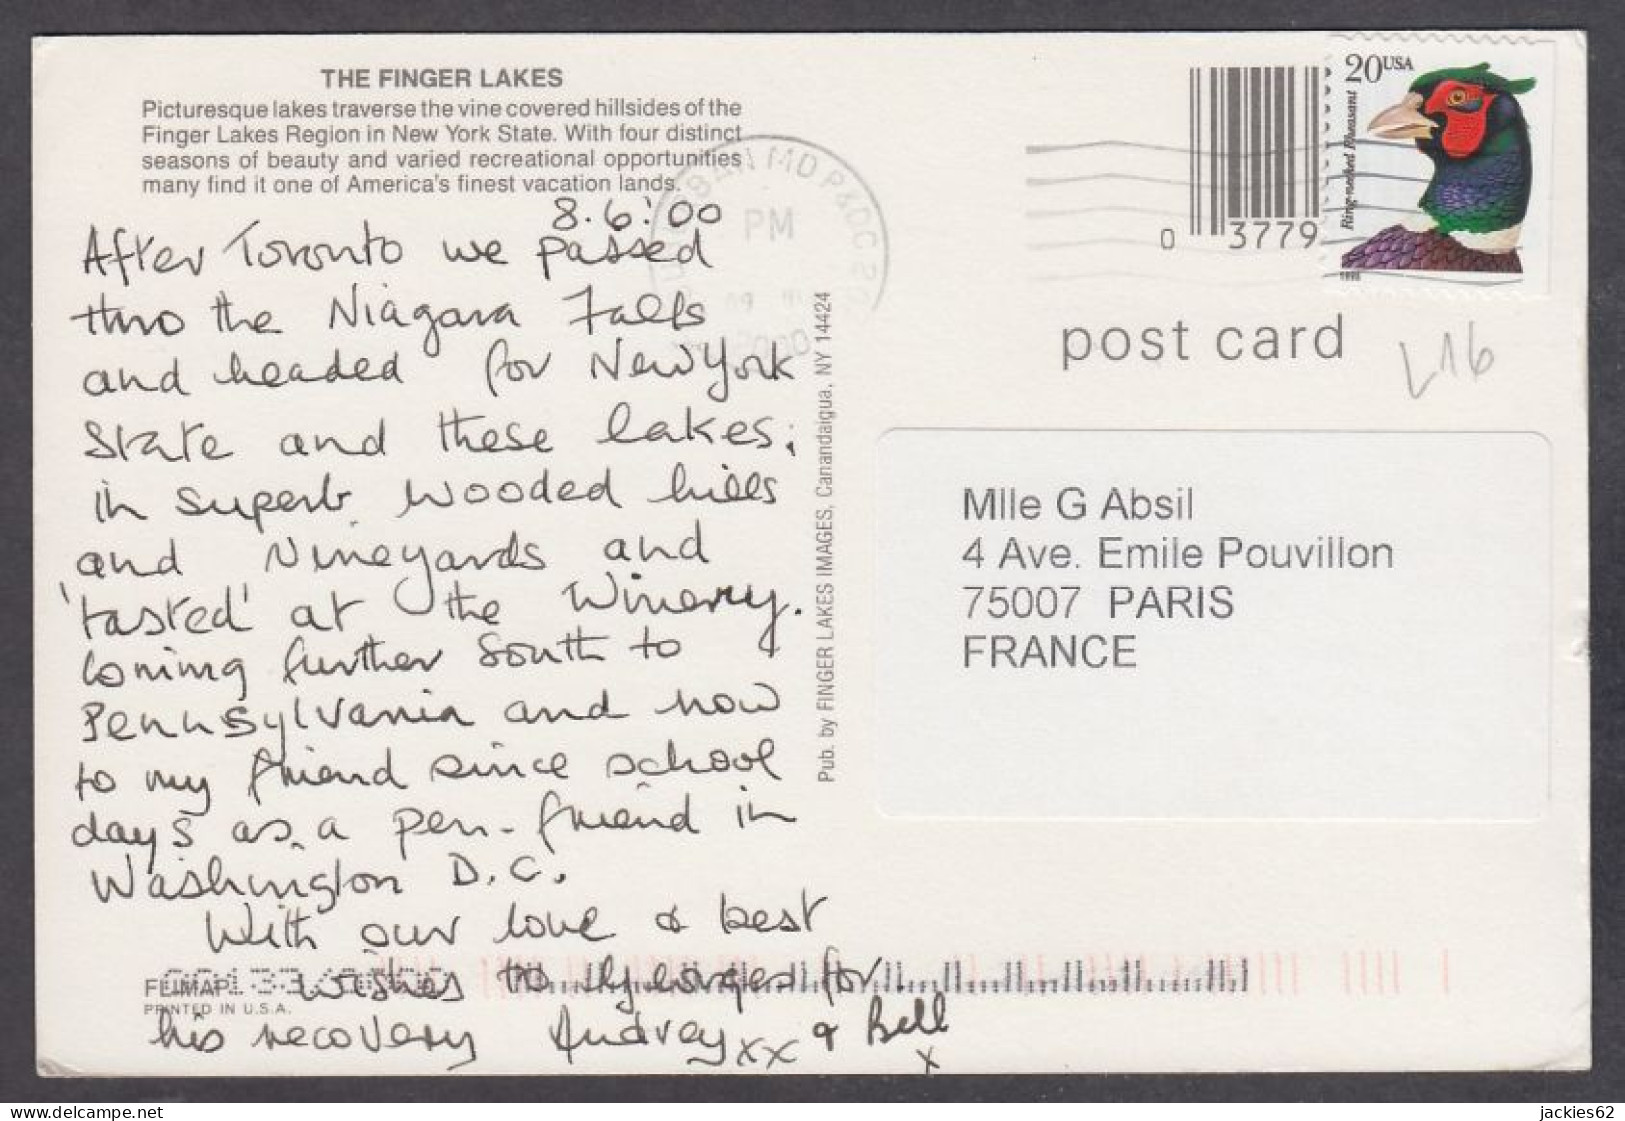 THE FINGER LAKES
Picturesque lakes traverse the vine covered hillsides of the
Finger Lakes Region in New York State. With four distinct
seasons of beauty and varied recreational opportunities
many find it one of America's finest vacation lands.
8.6.'00
After Toronto we passed
thro the Niagara Falls
and headed for New York
State and these lakes;
in superb wooded hills
and Vineyards and
'tasted' at the Winery.
Coming further South to
Pennsylvania and now
to my friend since school
days as a pen-friend in
Washington D.C.
With our love & best
wishes to Georges for
his recovery Audrey xx & Bell
x
FLIMAP
PRINTED IN U.S.A.
Pub. by FINGER LAKES IMAGES, Canandaigua, NY 14424
MD P&DC
PM
2000
0 3779
20USA
Ring-necked Pheasant
1998
post card
L16
Mlle G Absil
4 Ave. Emile Pouvillon
75007 PARIS
FRANCE
jackies62